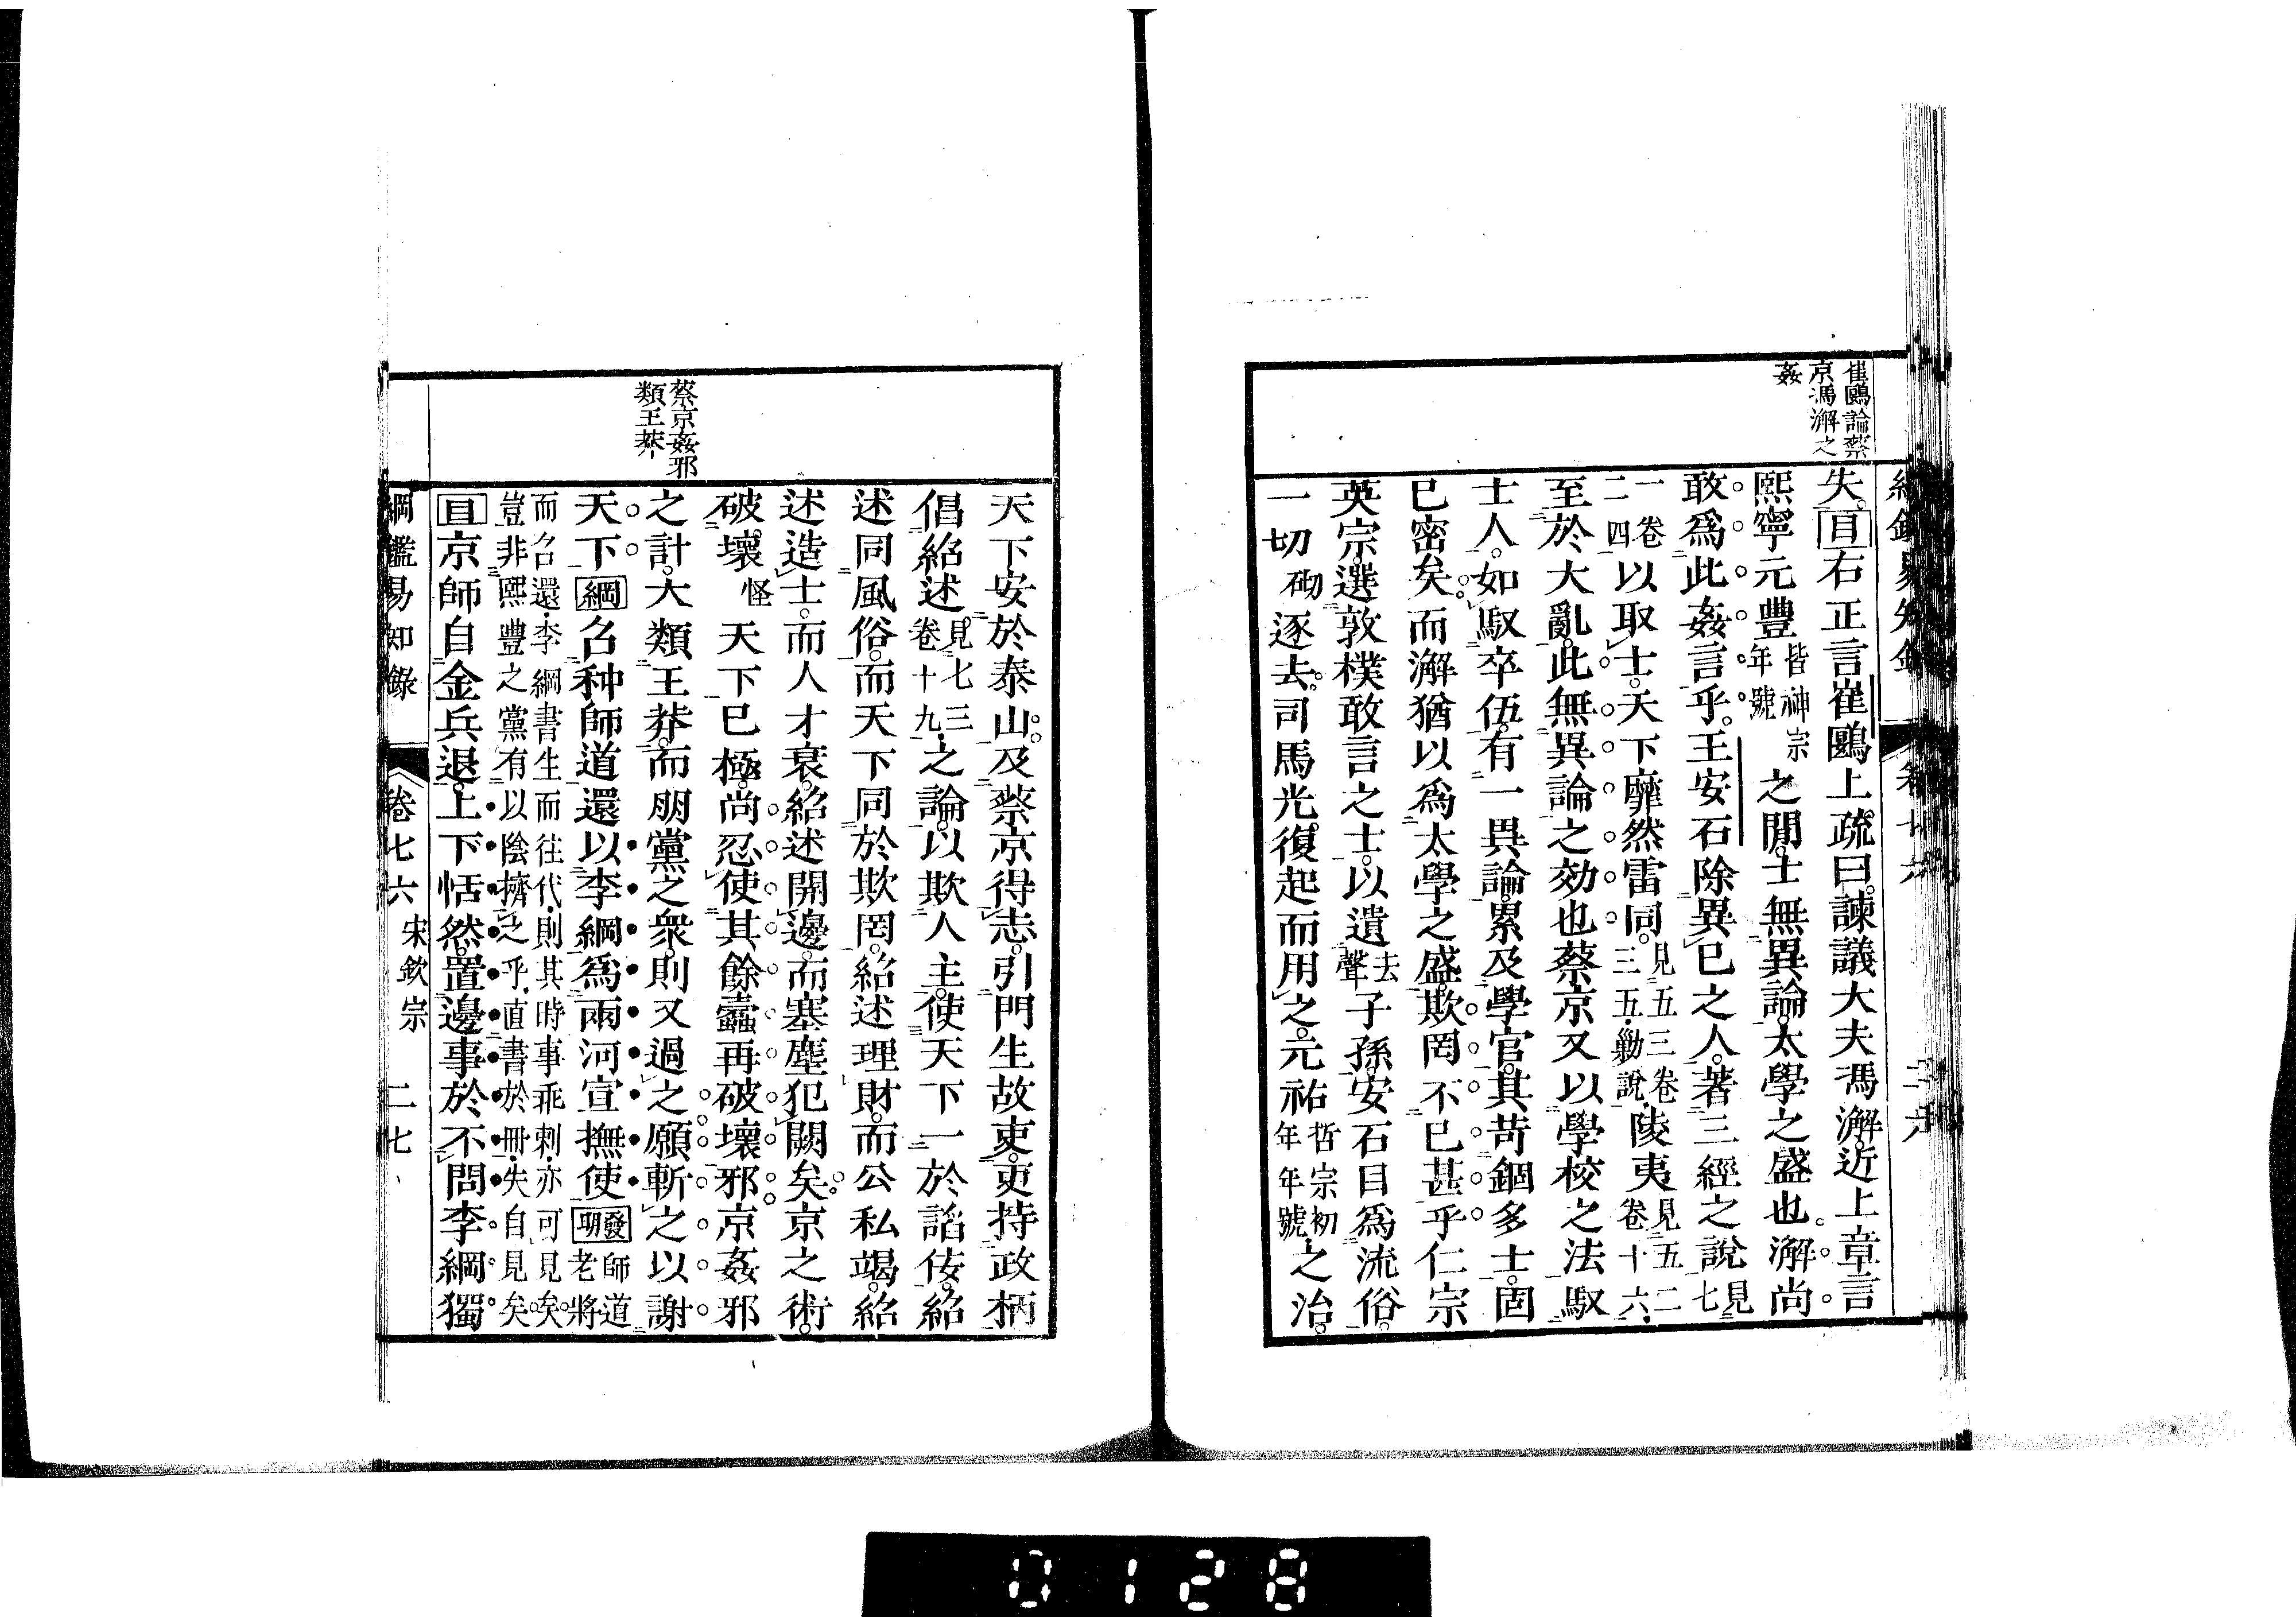 崔鷗論蔡
京馮澥之
姦
失。目右正言崔鷗上疏曰。諫議大夫馮澥近上章言
熙寧元豐皆神宗年號之閒。士無異論。太學之盛也。澥尚
敢爲此姦言乎。王安石除異己之人。著三經之說見七
一卷二四以取士。天下靡然雷同。見五三卷三五。勦說。陵夷見五二卷十六。
至於大亂。此無異論之効也蔡京又以學校之法馭
士人。如馭卒伍。有一異論。累及學官。其苛錮多士。固
已密矣。而澥猶以爲太學之盛。欺罔不已甚乎仁宗
英宗。選敦樸敢言之士。以遺去聲子孫。安石目爲流俗。
一切砌逐去。司馬光。復起而用之。元祐哲宗初年年號。之治。
天下安於泰山。及蔡京得志。引門生故吏。更持政柄
倡紹述。見七三卷十九。之論。以欺人主。使天下一於諂佞。紹
述同風俗。而天下同於欺罔。紹述理財。而公私竭。紹
述造士。而人才衰。紹述開邊。而塞塵犯闕矣。京之術。
破壞怪天下已極。尚忍使其餘蠹再破壞邪。京姦邪
之計。大類王莽。而朋黨之衆。則又過之願斬之以謝
天下綱召种師道還以李綱爲兩河宣撫使發明師道老將
而召還。李綱書生而往代。則其時事乖刺。亦可見矣。
豈非熙豐之黨有以陰擠之乎。直書於冊。失自見矣
目京師自金兵退。上下恬然。置邊事於不問李綱獨
蔡京姦邪
類王莽
綱鑑易知錄
卷七六 宋欽宗 二七
0128